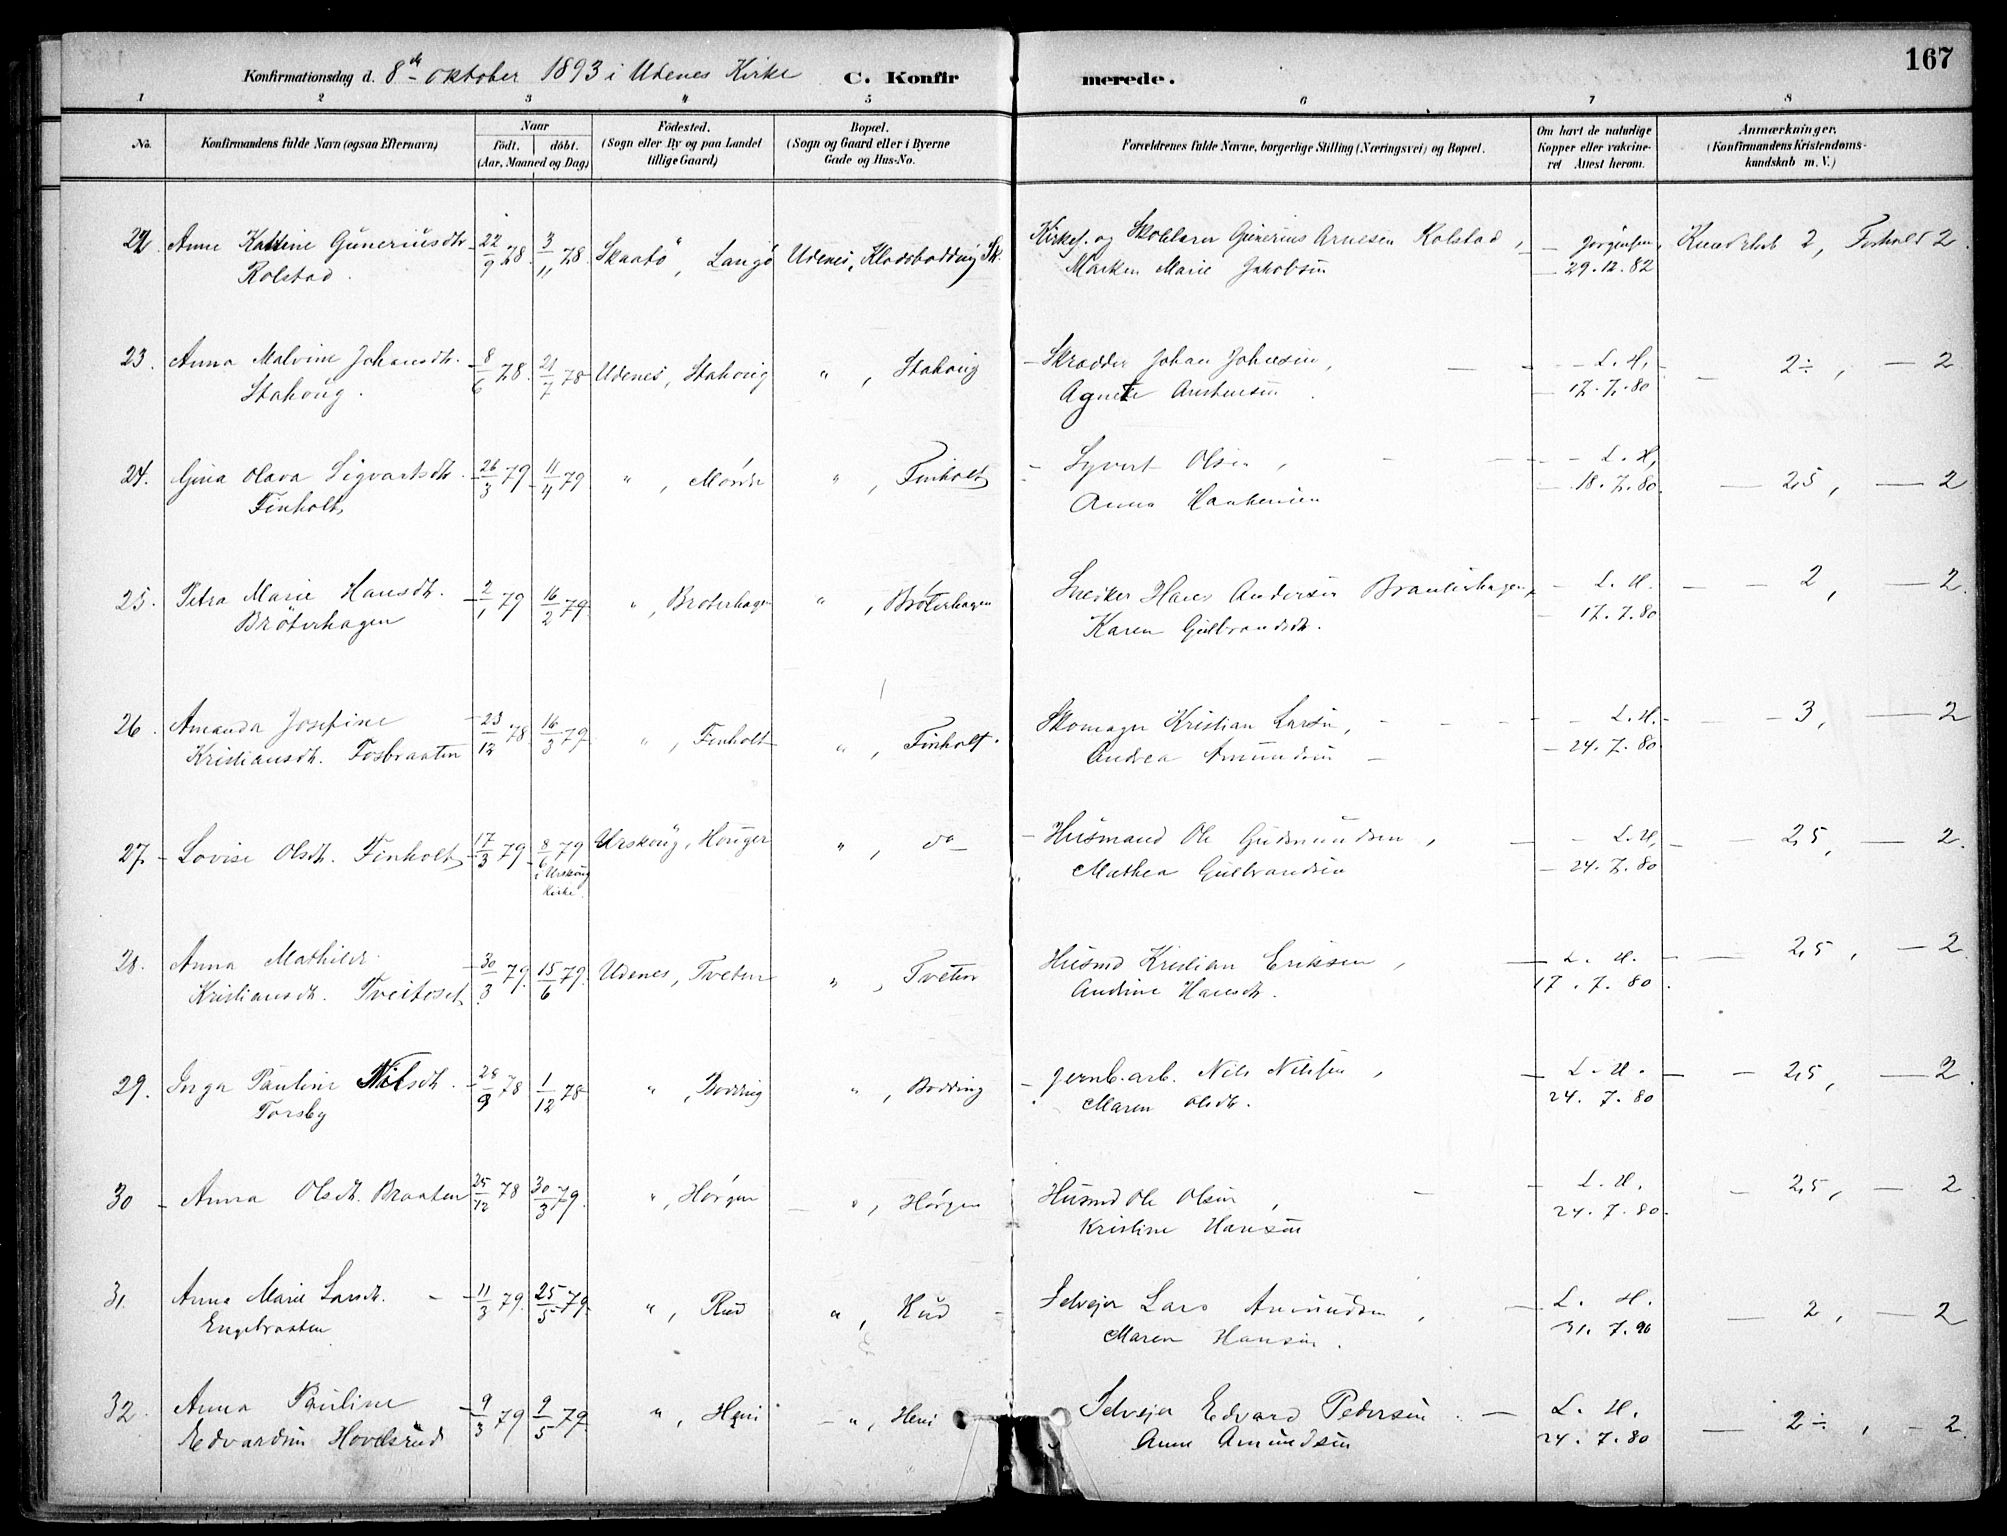 167
Konfirmationsdag d. 8de oktober 1893 i Udenes Kirke C. Konfirmerede.
1 2 3 4 5 6 7 8
No. Konfirmandens fulde Navn (ogsaa Efternavn) Naar født. døbt. (Aar, Maaned og Dag) Fødested. (Sogn eller By og paa Landet tillige Gaard) Bopæl. (Sogn og Gaard eller i Byerne Gade og Hus-No. Forældrenes fulde Navne, borgerlige Stilling (Næringsvei) og Bopæl. Om havt de naturlige Kopper eller vakcineret Attest herom. Anmærkninger. (Konfirmandens Kristendomskundskab m. V.)
22 Anne Katrine Guneriusdtr 22/9 78. 3/11 78. Skaatø, Langø Udenes, Kladsbodding Sk. Kirkes. og Skolelærer Gunerius Arnesen Kolstad, Jørgensen, Kundskab 2, Forhold 2.
Kolstad. Maren Marie Jakobsen 29.12.82
23. Anna Malvine Johansdtr. 8/6 78. 21/7 78 Udenes, Stahoug " , Stahoug Skrædder Johan Johnsen, L. H. 2÷, — 2.
Stahoug. Agnete Austensen 17.7.80
24. Gina Olava Sigvartsdtr. 26/3 79 11/4 79 " , Mørde " , Finholt Syvert Olsen, L. H. 2,5, — 2
Finholt, Anna Haakensen 18.7.80.
25. Petra Marie Hansdtr. 2/1 79 16/2 79 " , Brøterhagen " , Brøterhagen Snedker Hans Andersen Brauterhagen, L. H. — 2, — 2.
Brøterhagen Karen Gulbrandsdtr. 17.7.80
26. Amanda Josefine 23/12 78 16/3 79 " , Finholt " , Finholt. Skomager Kristian Larsen, L. H. — 3, — 2
Kristiansdtr. Fosbraaten Andrea Amundsen 24.7.80
27. Lovise Olsdtr. Finholt 17/3 79 8/6 79 Urskoug, Houger " , do Husmand Ole Gudmundsen, L. H. — 2,5, — 2.
i Urskoug Kirke. Mathea Gulbrandsen 24.7.80
28. Anna Mathilde 30/3 79. 15/6 79. Udenes, Tveten " , Tveten Husmd Kristian Eriksen, L. H. — 2,5, — 2
Kristiansdtr. Tveitoset Andrine Hansdtr. 17.7.80.
29. Inga Pauline Nilsdtr. 28/9 78 1/12 78 " , Bodding " , Bodding Jernb.arb. Nils Nilsen, L. H. — 2,5, — 2.
Torsby Maren Olsdtr. 24.7.80
30 Anna Olsdtr. Braaten 25/12 78 30/3 79. " , Hørgen " , Hørgen Husmd Ole Olsen, L. H. — 2,5, — 2.
Kristine Hansen 24.7.80.
31. Anna Marie Larsdtr. 11/3 79. 25/5 79. " , Rud " , Rud Selvejer Lars Amundsen, L. H. — 2, — 2
Engebraaten Maren Hansen. 31.7.90
32. Anna Pauline 9/3 79 9/5 79 " , Heni " , Heni Selvejer Edvard Pedersen. L. H. — 2÷, — 2.
Edvardsen Hovelsrud Anne Amundsen 24.7.80